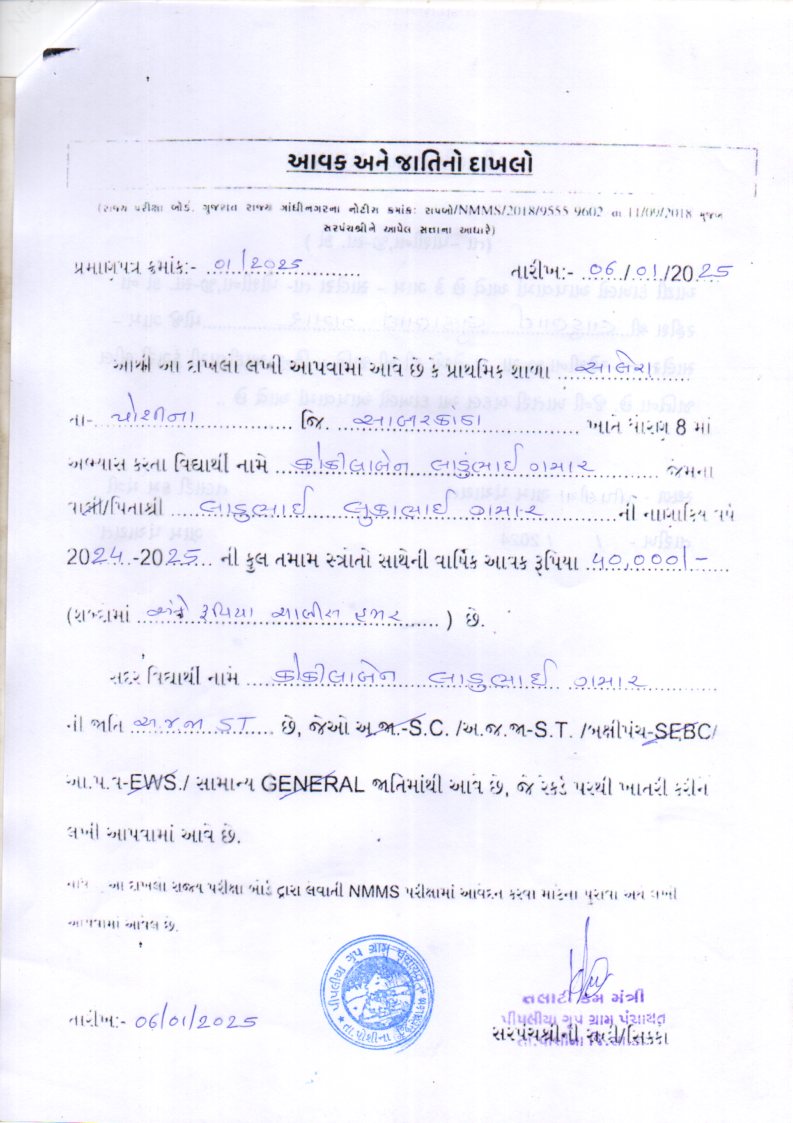 આવક અને જાતિનો દાખલો
(રાજ્ય પરીક્ષા બોર્ડ. ગુજરાત રાજ્ય ગાંધીનગરના નોટીસ ક્રમાંક: રાપબો/NMMS/2018/9555-9602 તા 11/09/2018 મુજબ
સરપંચશ્રીને આપેલ સત્તાના આધારે)
પ્રમાણપત્ર ક્રમાંક:- 01/2025 તારીખ:- 06/01/2025
આથી આ દાખલો લખી આપવામાં આવે છે કે પ્રાથમિક શાળા સાલેરા
તા- પોશીના જિ. સાબરકાંઠા ખાતે ધોરણ 8 માં
અભ્યાસ કરતા વિદ્યાર્થી નામે કોકીલાબેન લાડુભાઈ ગમાર જેમના
વાલી/પિતાશ્રી લાડુભાઈ લુકાભાઈ ગમાર ની નાણાકિય વર્ષ
2024-2025 ની કુલ તમામ સ્ત્રોતો સાથેની વાર્ષિક આવક રૂપિયા ૪૦,૦૦૦/-
(શબ્દોમાં અંકે રૂપિયા ચાલીસ હજાર ) છે.
સદર વિદ્યાર્થી નામે કોકીલાબેન લાડુભાઈ ગમાર
ની જાતિ અ.જ.જા ST છે, જેઓ અ.જા.-S.C. /અ.જ.જા-S.T. /બક્ષીપંચ-SEBC/
આ.પ.વ-EWS./ સામાન્ય GENERAL જાતિમાંથી આવે છે, જે રેકર્ડ પરથી ખાતરી કરીને
લખી આપવામાં આવે છે.
નોંધ આ દાખલો રાજ્ય પરીક્ષા બોર્ડ દ્વારા લેવાતી NMMS પરીક્ષામાં આવેદન કરવા માટેના પુરાવા અર્થે લખી
આપવામાં આવેલ છે.
પીપલીયા ગૃપ ગ્રામ પંચાયત
તા. પોશીના
તલાટી કમ મંત્રી
પીપલીયા ગૃપ ગ્રામ પંચાયત
તારીખ:- 06/01/2025 સરપંચશ્રીની સહી/સિક્કો